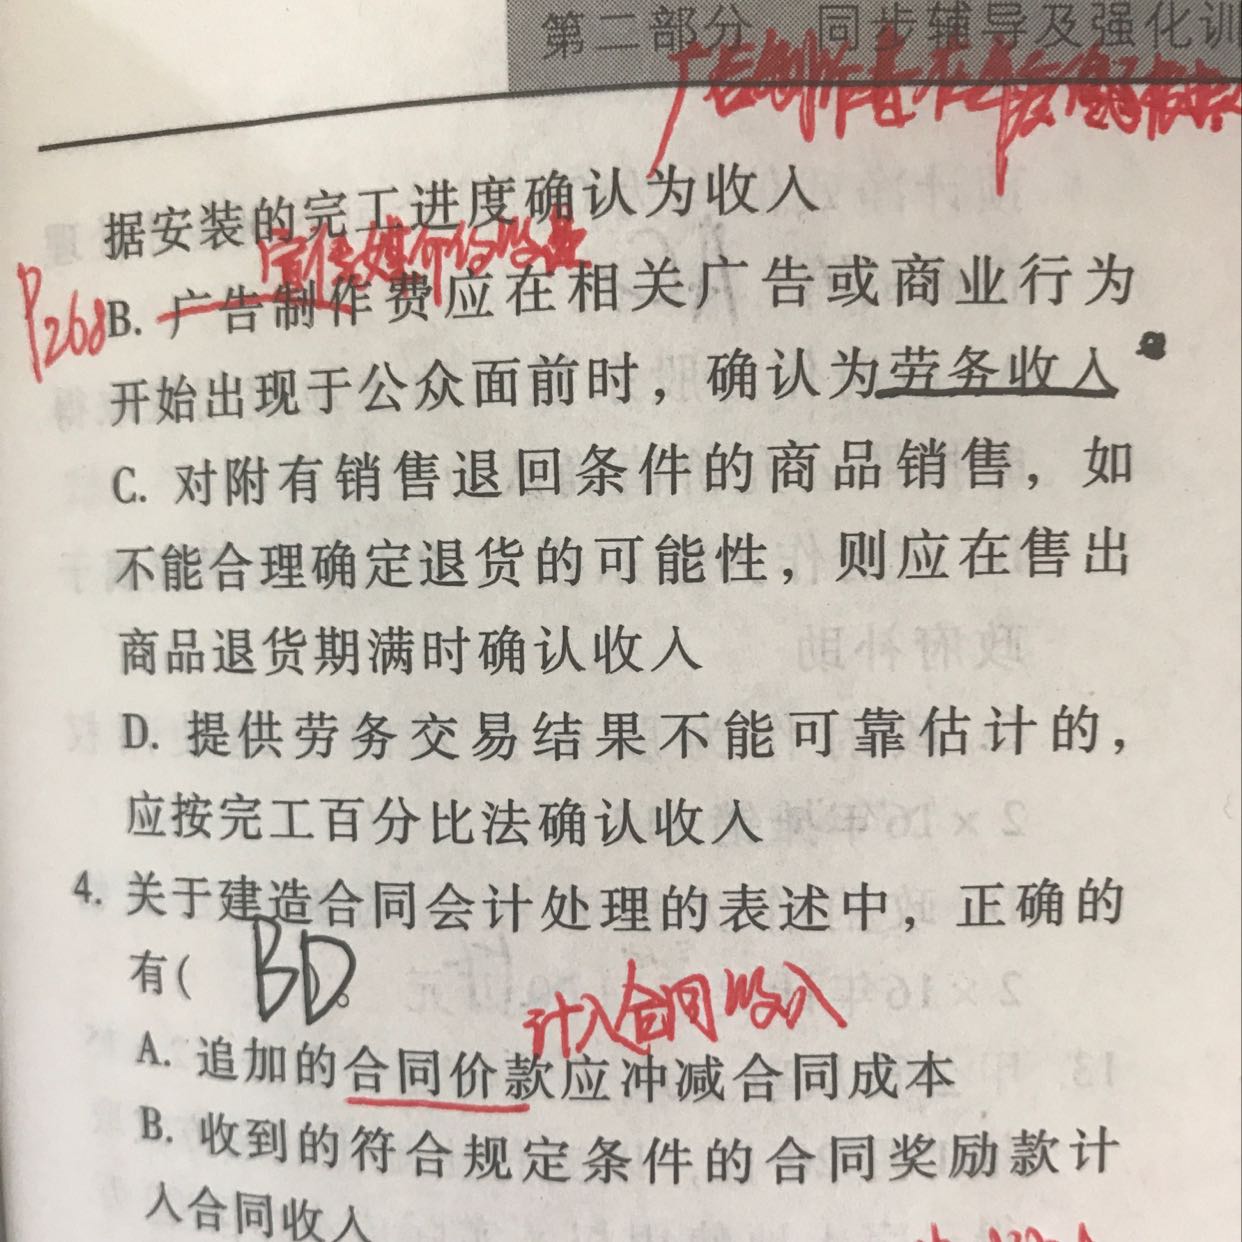 第二部分 同步辅导及强化训
广告制作费在年
据安装的完工进度确认为收入
宣传媒介的收费
P268
B. 广告制作费应在相关广告或商业行为
开始出现于公众面前时，确认为劳务收入
C. 对附有销售退回条件的商品销售，如
不能合理确定退货的可能性，则应在售出
商品退货期满时确认收入
D. 提供劳务交易结果不能可靠估计的，
应按完工百分比法确认收入
4. 关于建造合同会计处理的表述中，正确的
有( BD 。
计入合同收入
A. 追加的合同价款应冲减合同成本
B. 收到的符合规定条件的合同奖励款计
入合同收入